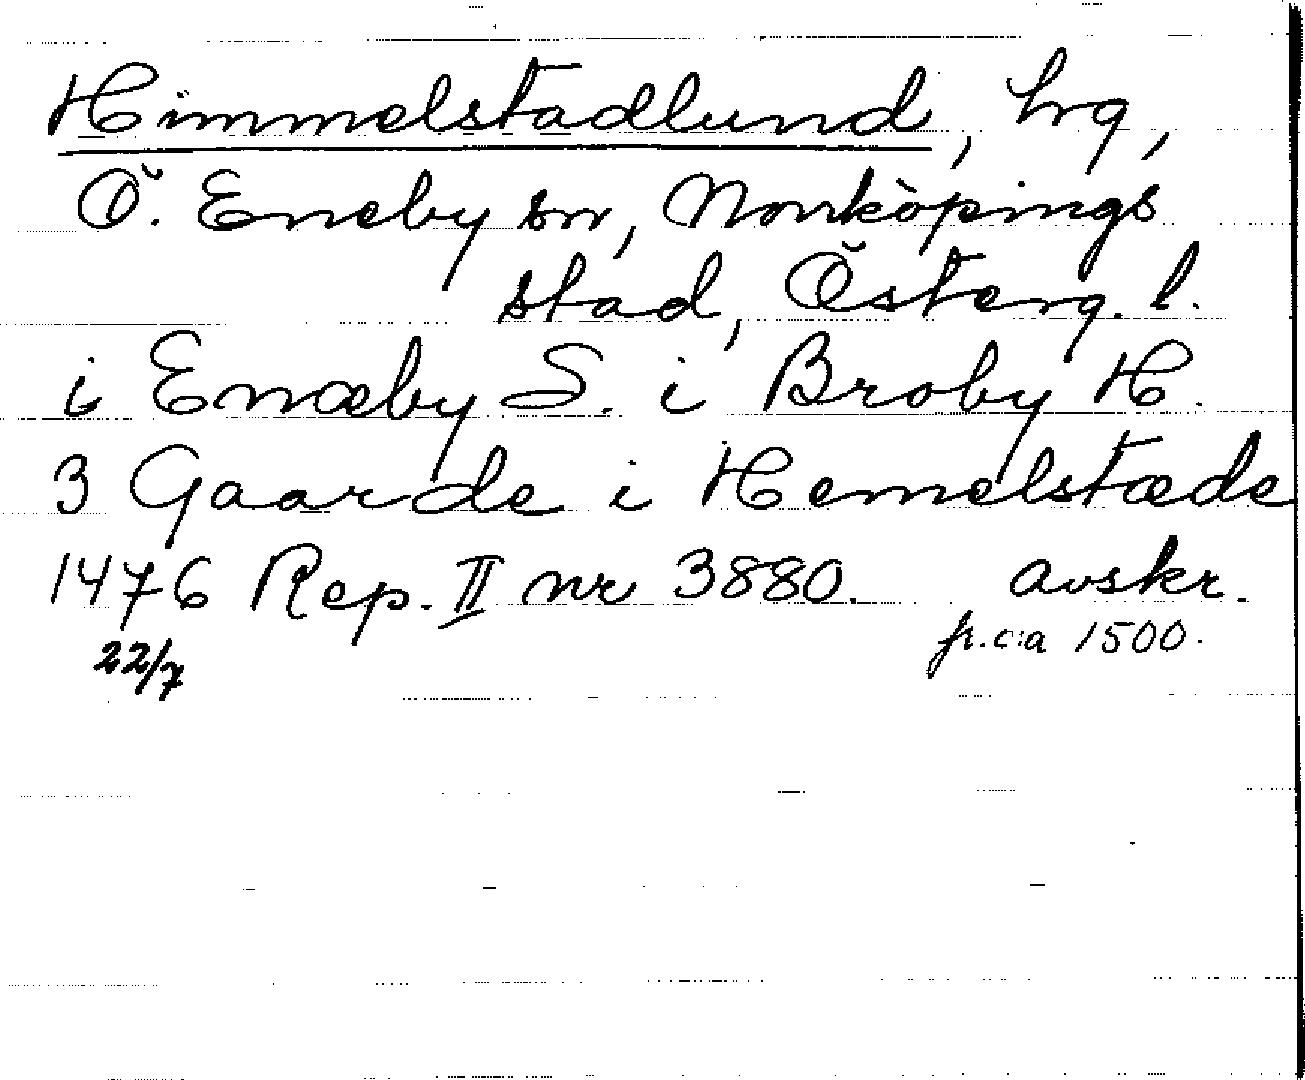 Himmelstadlund, hrg,
Ö. Eneby sn, Norrköpings
stad, Österg. l.
i Enæby S. i Broby H.
3 Gaarde i Hemelstæde
1476 Rep. II nr 3880. avskr.
22/7 fr. c:a 1500.